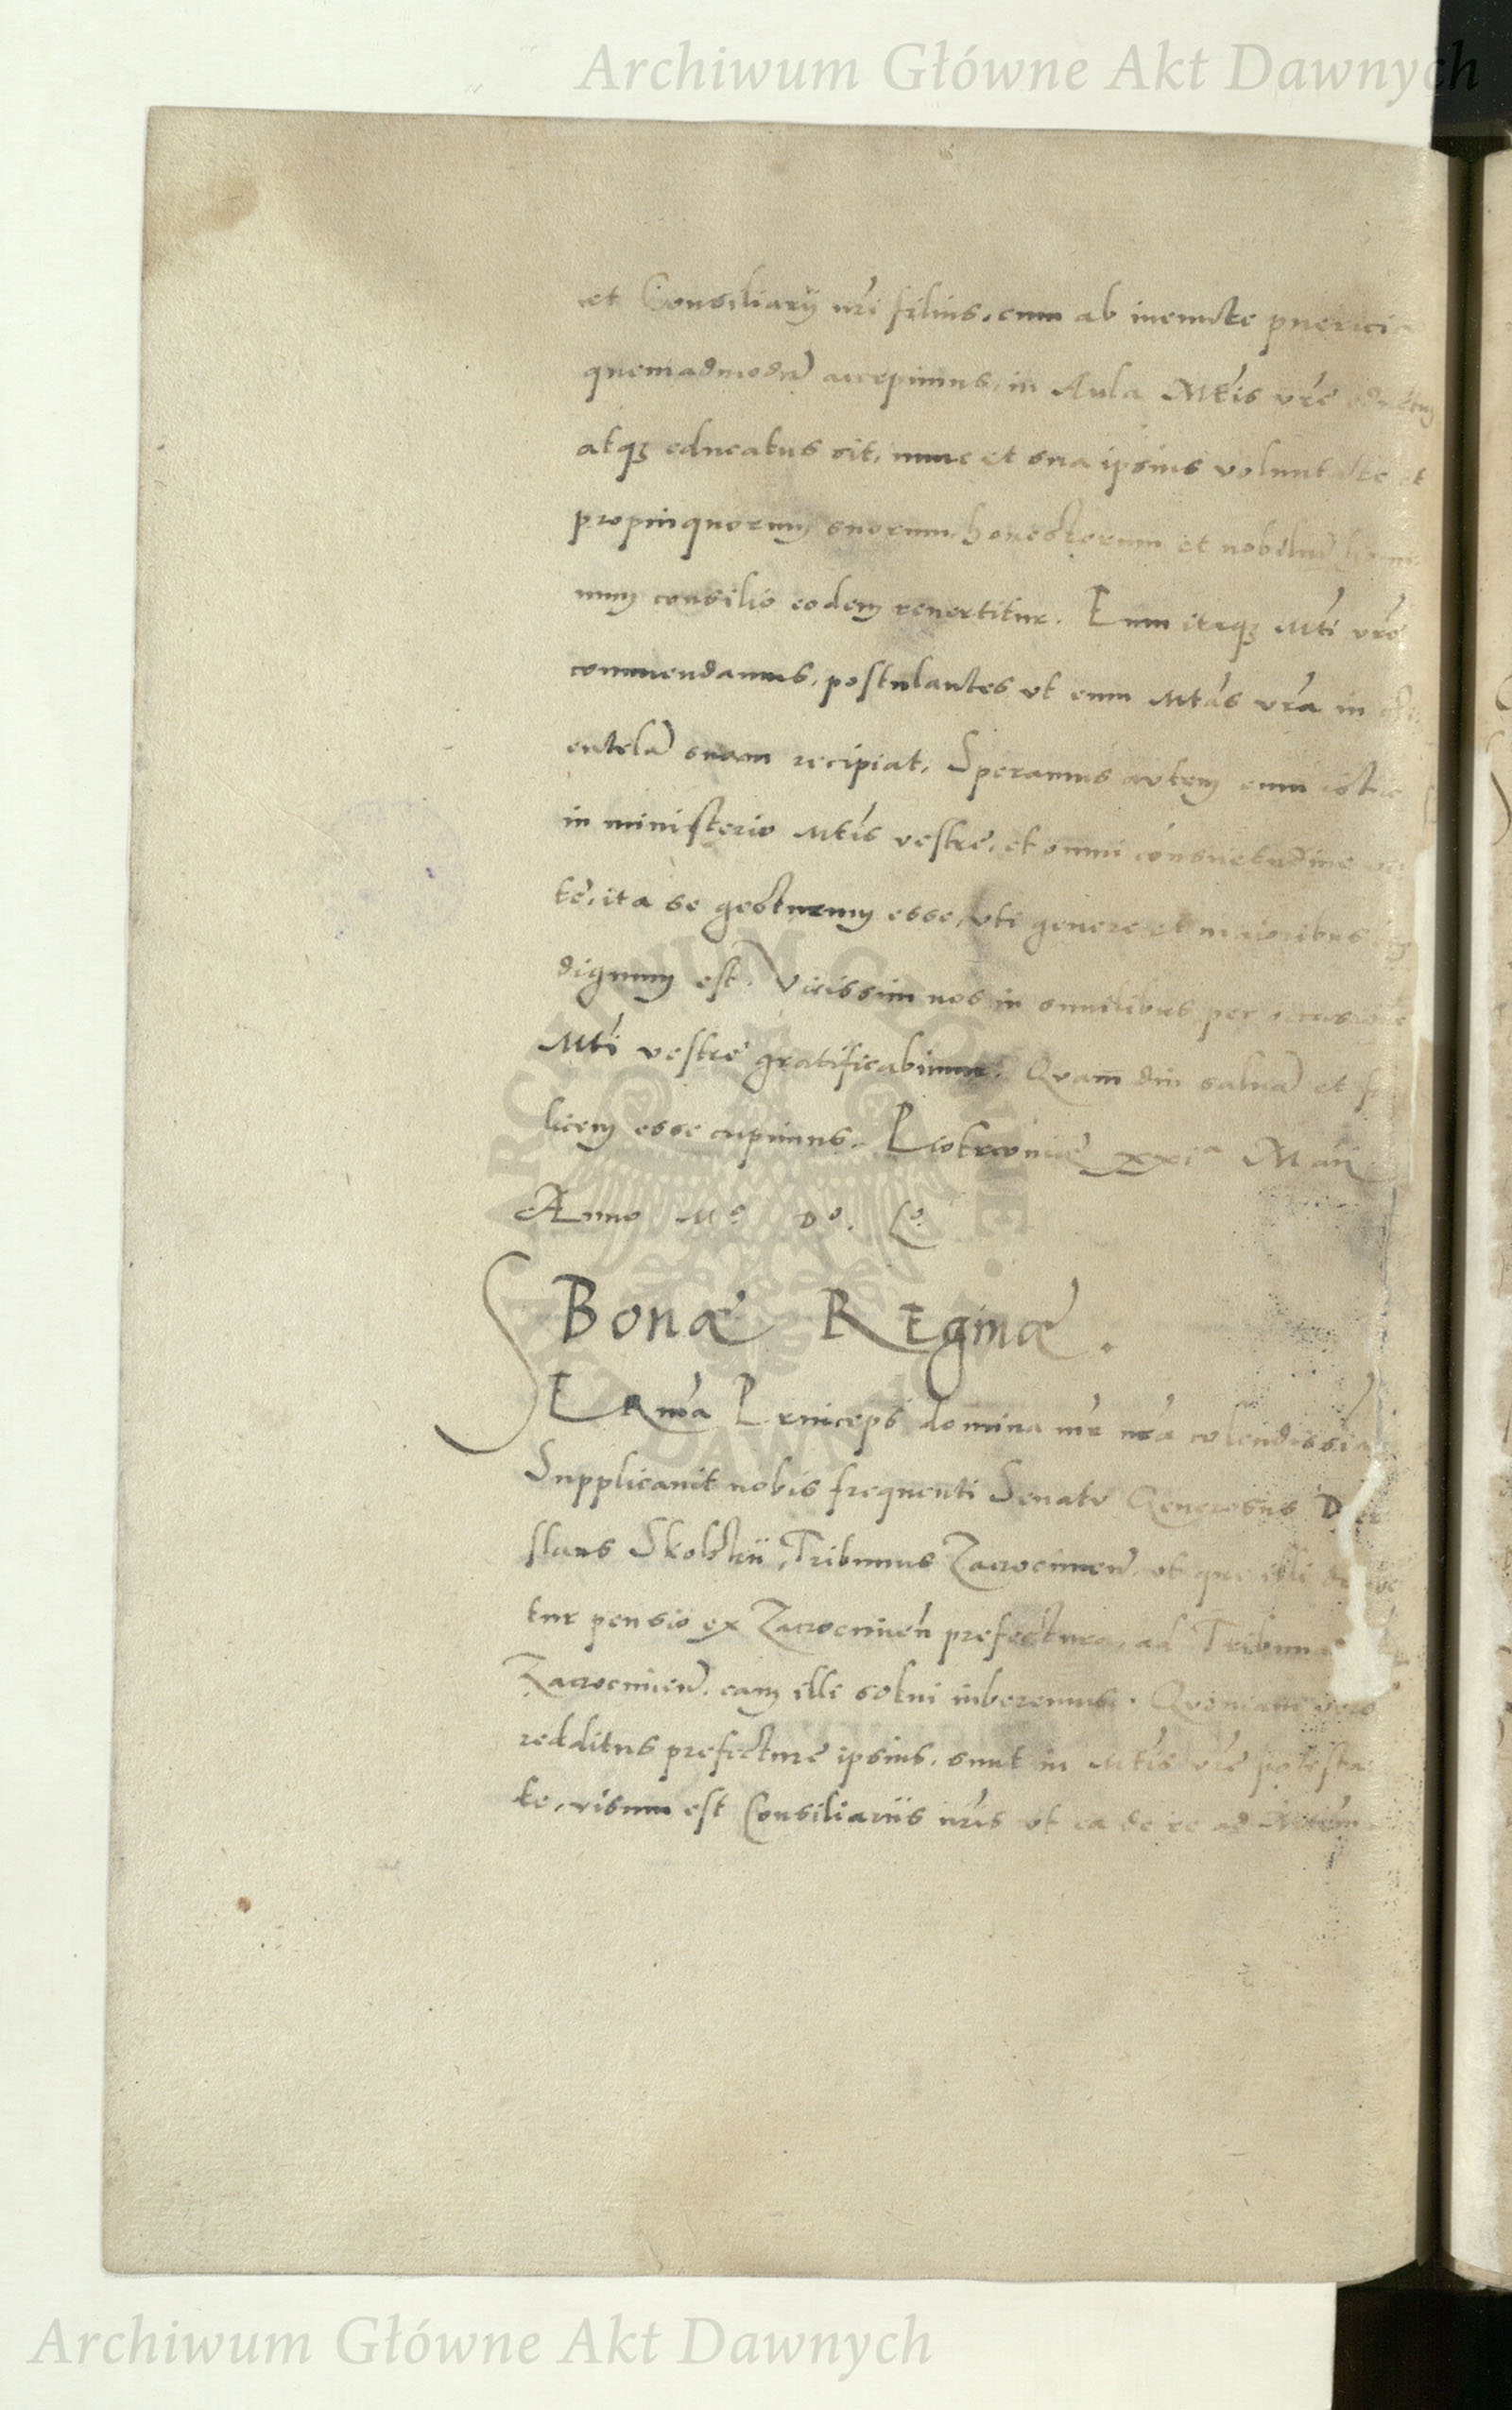 Archiwum Główne Akt Dawnych
et Consiliarij nri filius, cum ab ineunte puericia
quemadmodũ accepimus, in Aula Mtis vrę
atqz educatus sit, nunc et sua ipsius voluntate et
propinquorum suorum honestorum et nobiliũ homi
num consilio eodem revertitur. Eum itaqz Mti vrę
commendamus, postulantes ut eum Mtas vra in
entelã suam recipiat. Speramus autem eum
in ministerio Mtis vestrę, et omni consuetudine
tę, ita se gesturum esse, uti genere et maioribus
dignum est. Vicissim nos in similibus per
Mti vestrę gratificabimur. Quam diu salvã et
licem esse cupimus. Piotrcovię XXIa Maij
Anno Mo Do. Lo.
Bonæ Reginæ.
SERma Princeps domina mr nra colendissia
Supplicavit nobis frequenti Senatu Generosus
slaus Skolskii, Tribunus Zacrocimen. ut que illi
tur pensio ex Zacrocimen prefectura, ad
Zacrocimen. eam illi solui iuberemus. Quoniam vero
redditus prefecturę ipsius, sunt in Mtis vrę potesta
te, visum est Consiliariis nris ut ea de re ad Mtem
ARCHIWUM GŁÓWNE AKT DAWNYCH
Archiwum Główne Akt Dawnych